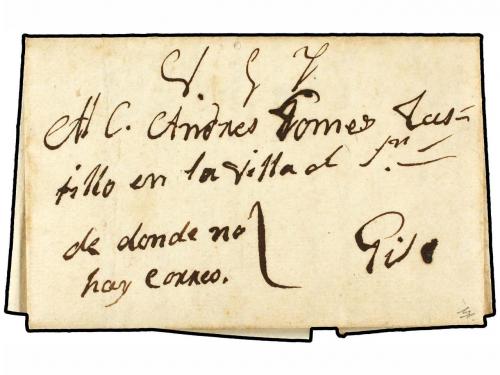 Al C. Andres Gomes Cas-
tillo en la villa d
de donde no
hay Correo.